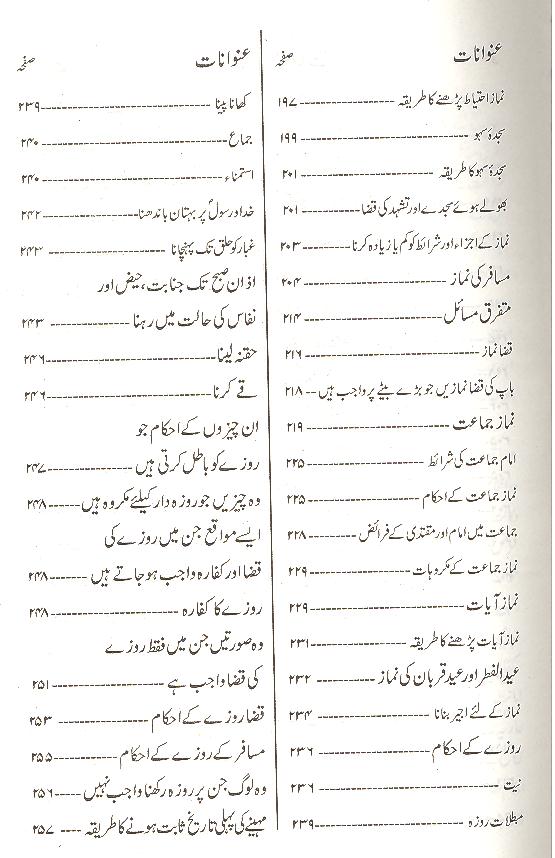 عنوانات صفحہ
نماز احتیاط پڑھنے کا طریقہ ---------- ۱۹۷
سجدۂ سہو ---------- ۱۹۹
سجدۂ سہو کا طریقہ ---------- ۲۰۱
بھولے ہوئے سجدے اور تشہد کی قضا ---------- ۲۰۱
نماز کے اجزاء اور شرائط کو کم یا زیادہ کرنا ---------- ۲۰۳
مسافر کی نماز ---------- ۲۰۴
متفرق مسائل ---------- ۲۱۴
قضا نماز ---------- ۲۱۶
باپ کی قضا نمازیں جو بڑے بیٹے پر واجب ہیں -- ۲۱۸
نماز جماعت ---------- ۲۱۹
امام جماعت کی شرائط ---------- ۲۲۵
نماز جماعت کے احکام ---------- ۲۲۵
جماعت میں امام اور مقتدی کے فرائض ---------- ۲۲۸
نماز جماعت کے مکروہات ---------- ۲۲۹
نماز آیات ---------- ۲۲۹
نماز آیات پڑھنے کا طریقہ ---------- ۲۳۱
عید الفطر اور عید قربان کی نماز ---------- ۲۳۲
نماز کے لئے اجیر بنانا ---------- ۲۳۴
روزے کے احکام ---------- ۲۳۶
نیت ---------- ۲۳۶
مبطلات روزہ ---------- ۲۳۹
عنوانات صفحہ
کھانا پینا ---------- ۲۳۹
جماع ---------- ۲۴۰
استمناء ---------- ۲۴۰
خدا و رسولؐ پر بہتان باندھنا ---------- ۲۴۲
غبار کو حلق تک پہنچانا ---------- ۲۴۳
اذان صبح تک جنابت، حیض اور
نفاس کی حالت میں رہنا ---------- ۲۴۳
حقنہ لینا ---------- ۲۴۶
قے کرنا ---------- ۲۴۶
ان چیزوں کے احکام جو
روزے کو باطل کرتی ہیں ---------- ۲۴۷
وہ چیزیں جو روزہ دار کیلئے مکروہ ہیں ------ ۲۴۸
ایسے مواقع جن میں روزے کی
قضا اور کفارہ واجب ہو جاتے ہیں ------- ۲۴۸
روزے کا کفارہ ---------- ۲۴۸
وہ صورتیں جن میں فقط روزے
کی قضا واجب ہے ---------- ۲۵۱
قضا روزے کے احکام ---------- ۲۵۳
مسافر کے روزے کے احکام ---------- ۲۵۵
وہ لوگ جن پر روزہ رکھنا واجب نہیں ----- ۲۵۶
مہینے کی پہلی تاریخ ثابت ہونے کا طریقہ ---- ۲۵۷